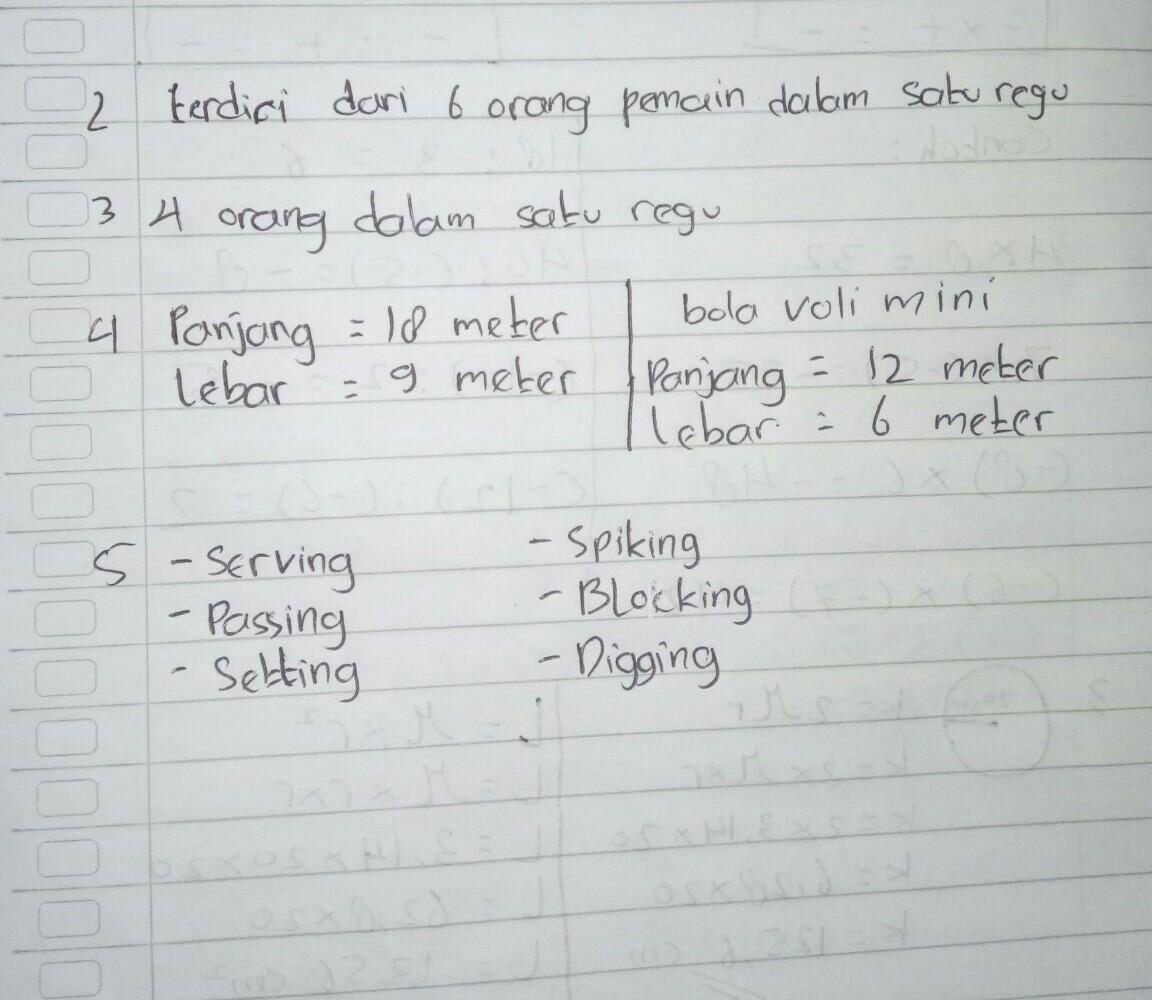 2 terdiri dari 6 orang pemain dalam satu regu
3 4 orang dalam satu regu
4 Panjang = 18 meter
lebar = 9 meter
bola voli mini
Panjang = 12 meter
lebar = 6 meter
5 - Serving
- Passing
- Setting
- Spiking
- Blocking
- Digging